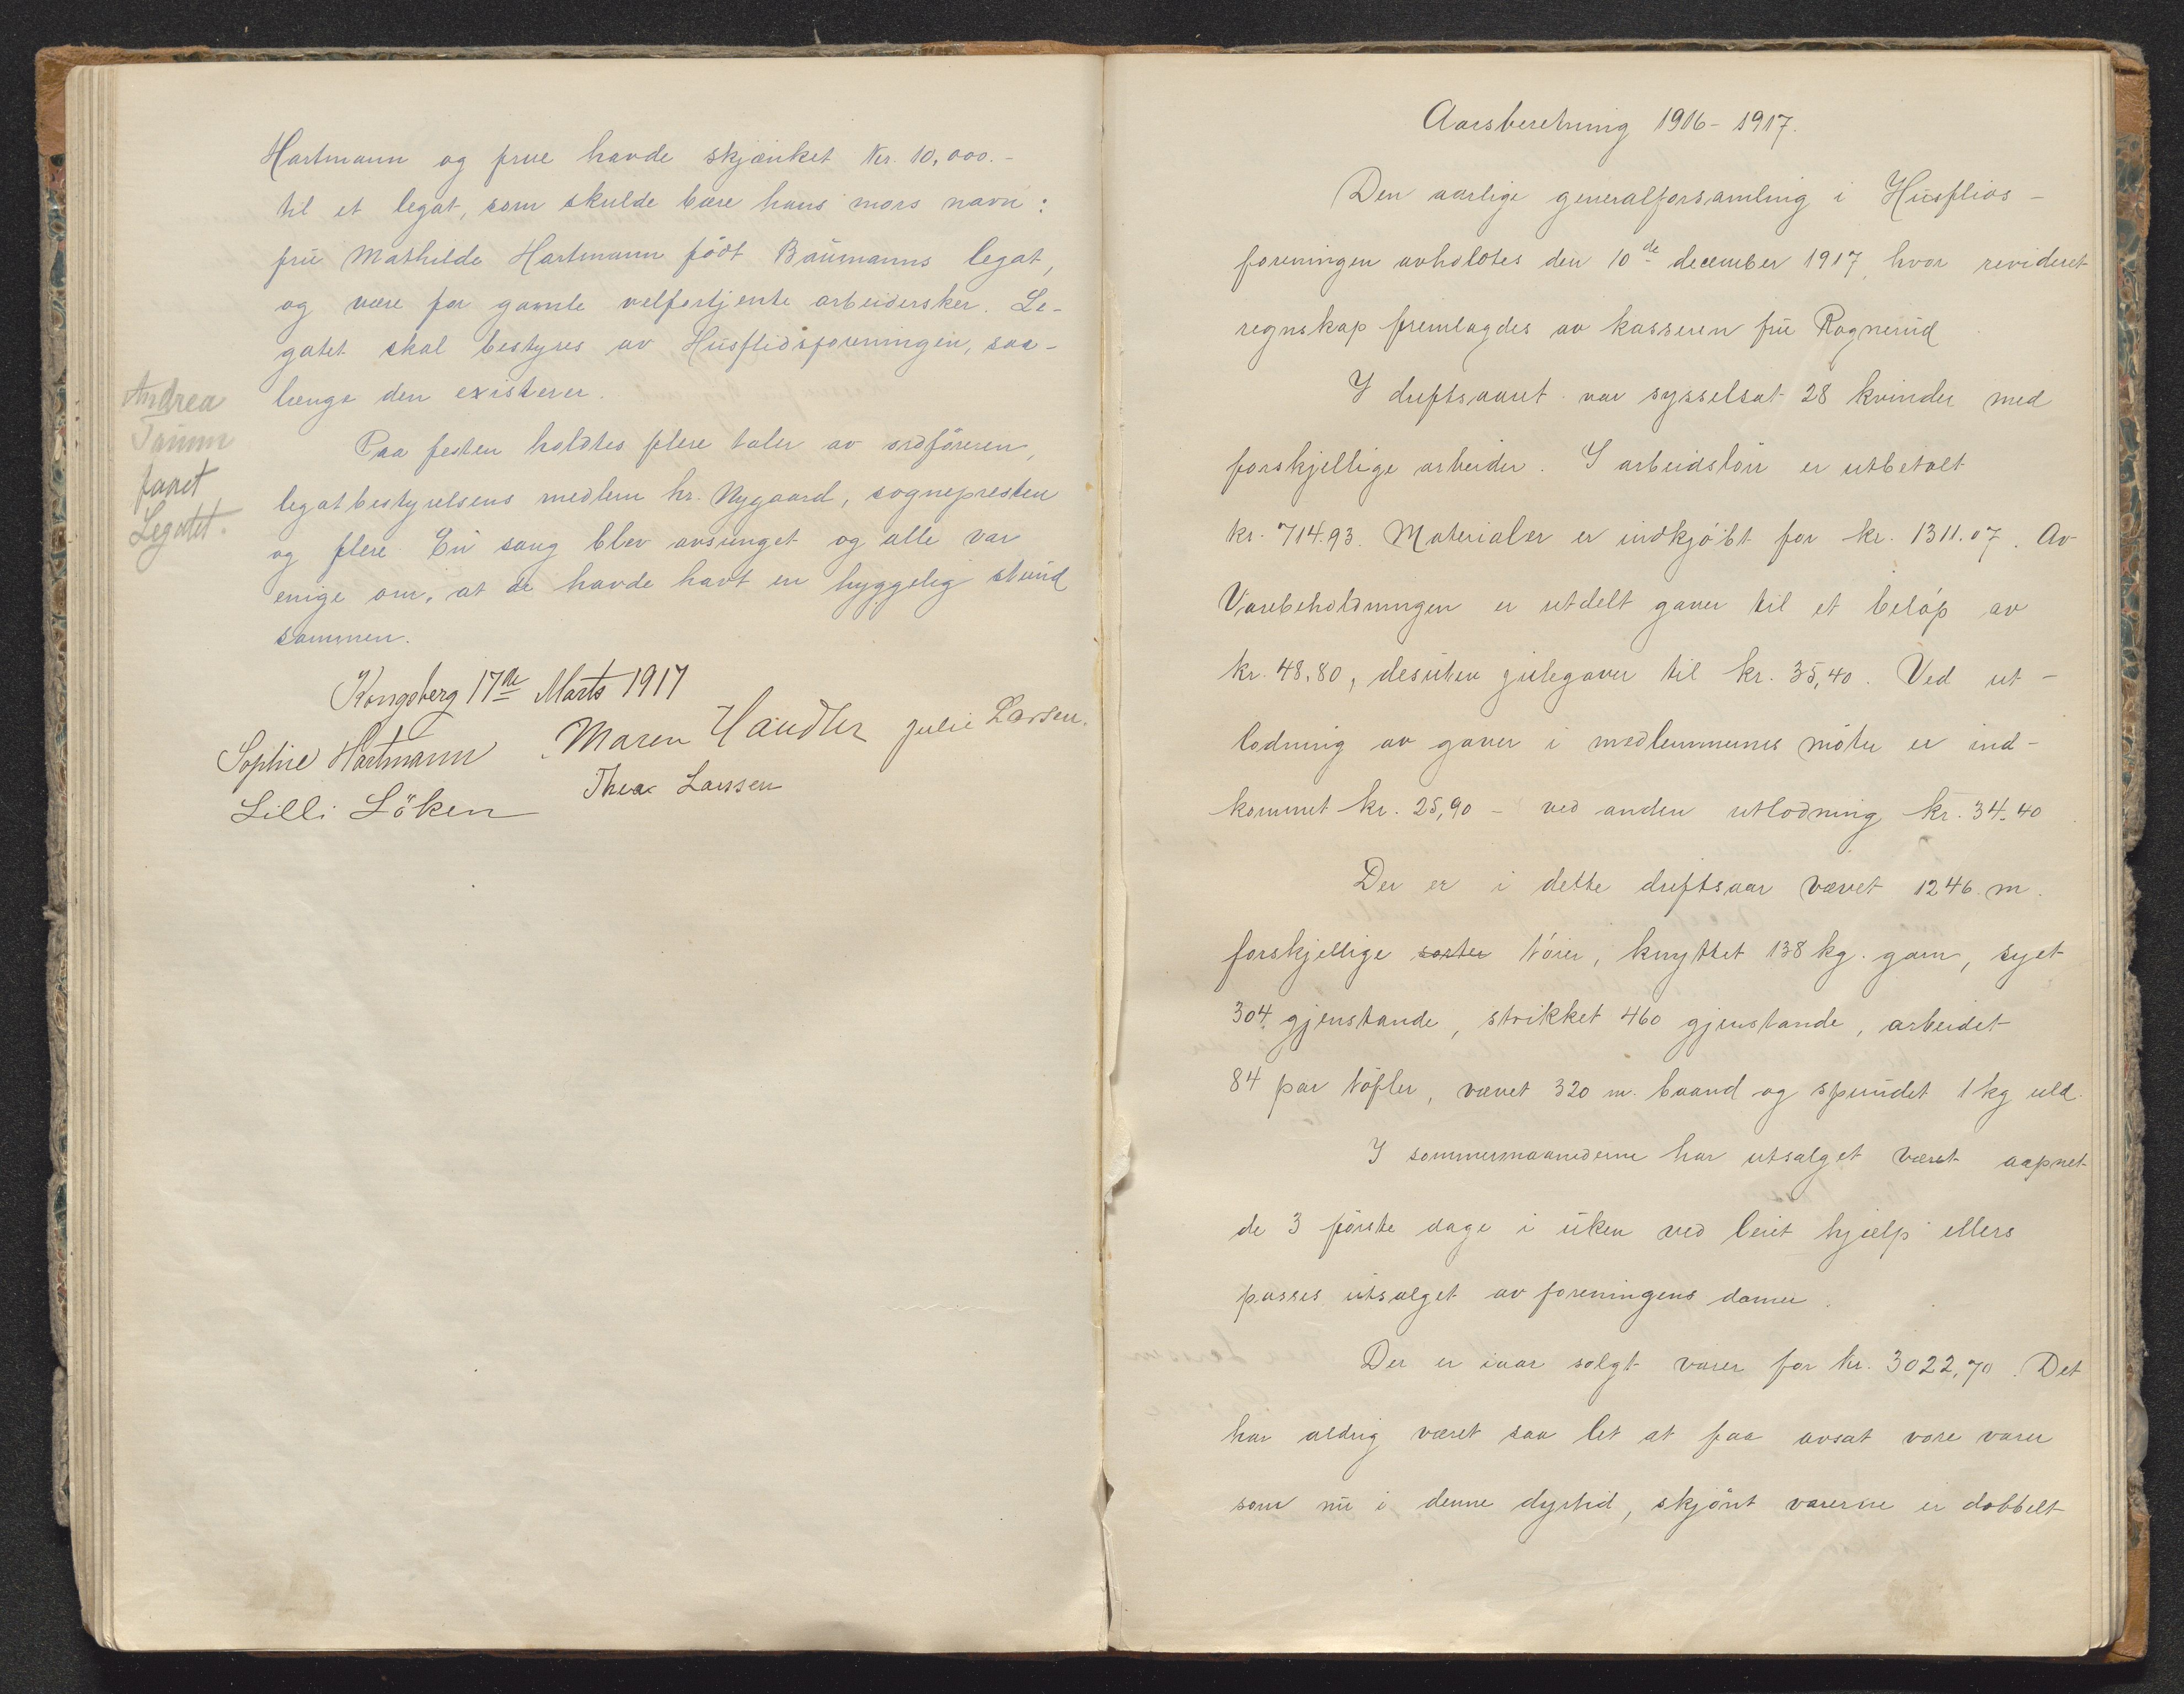 Hartmann og frue havde skjænket Kr. 10,000.-
til et legat, som skulde bære hans mors navn:
frü Mathilde Hartmann född Baümanns legat,
og være for gamle velfortjente arbeidersker. Le-
gatet skal bestyres av Hüsflidsforeningen, saa-
længe den existerer.
Andrea
faaet
Legatet.
Paa festen holdtes flere taler av ordföreren,
legatbestyrelsens medlem hr. Nygaard, sognepresten
og flere. En sang blev avsunget og alle var
enige om, at de havde havt en hyggelig stünd
sammen.
Kongsberg 17de Marts 1917
Sophie Hartmann Maren Händler Julie Larsen.
Lilli Löken Thea Larssen
Aarsberetning 1916-1917.
Den aarlige generalforsamling i Hüsflids-
foreningen avholdtes den 10de december 1917, hvor revideret
regnskap fremlagdes av kasseren frü Ragnerüd
I driftsaaret var sysselsat 28 kvinder med
forskjellige arbeider. I arbeidslön er utbetalt
kr. 714.93. Materialer er indkjöbt for kr. 1311.07. Av
Varebeholdningen er utdelt gaver til et belöp av
kr. 48,80, desüten julegaver til kr. 35,40. Ved ut-
lodning av gaver i medlemmernes möter er ind-
kommet kr. 25,90 - ved anden utlodning kr. 34.40
Der er i dette driftsaar vævet 1246 m.
forskjellige sorter töier, knyttet 138 kg. garn, syet
304 gjenstande, strikket 460 gjenstande, arbeidet
84 par töfler, vævet 320 m. baand og spündet 1 kg uld.
I sommermaanederne har utsalget været aapnet
de 3 förste dage i üken ved leiet hjælp ellers
passes ütsalget av foreningens damer.
Der er iaar solgt varer for kr. 3022,70. Det
har aldrig været saa let at faa avsat vore varer
som nü i denne dyrtid, skjönt varerne er dobbelt